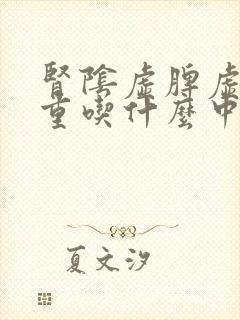 腎陰虛脾虛
重喫什麼中
夏文汐